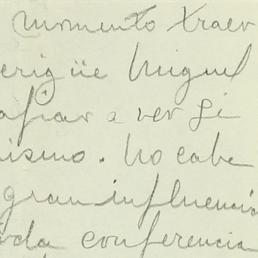 momento traer
erigüe Miguel
afiar a ver si
mismo. No cabe
gran influencia
da conferencia